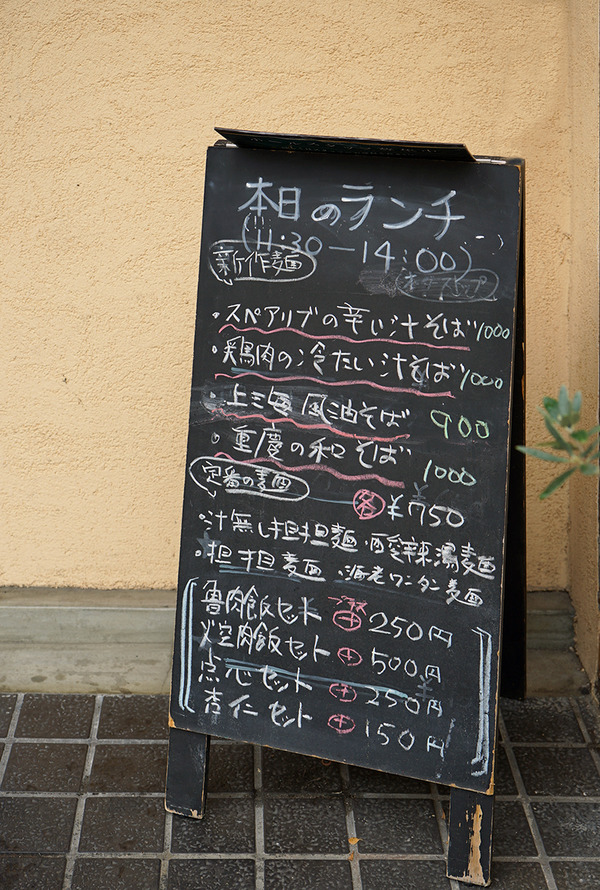 本日のランチ
(11:30-14:00)
新作麺
・スペアリブの辛い汁そば 1000
・鶏肉の冷たい汁そば 1000
・上海風油そば 900
・重慶の和そば 1000
定番の麺 各¥750
・汁無し担担麺・酸辣湯麺
・担担麺 ・海老ワンタン麺
魯肉飯セット プラス + 250円
火空肉飯セット + 500円
点心セット + 250円
杏仁セット + 150円